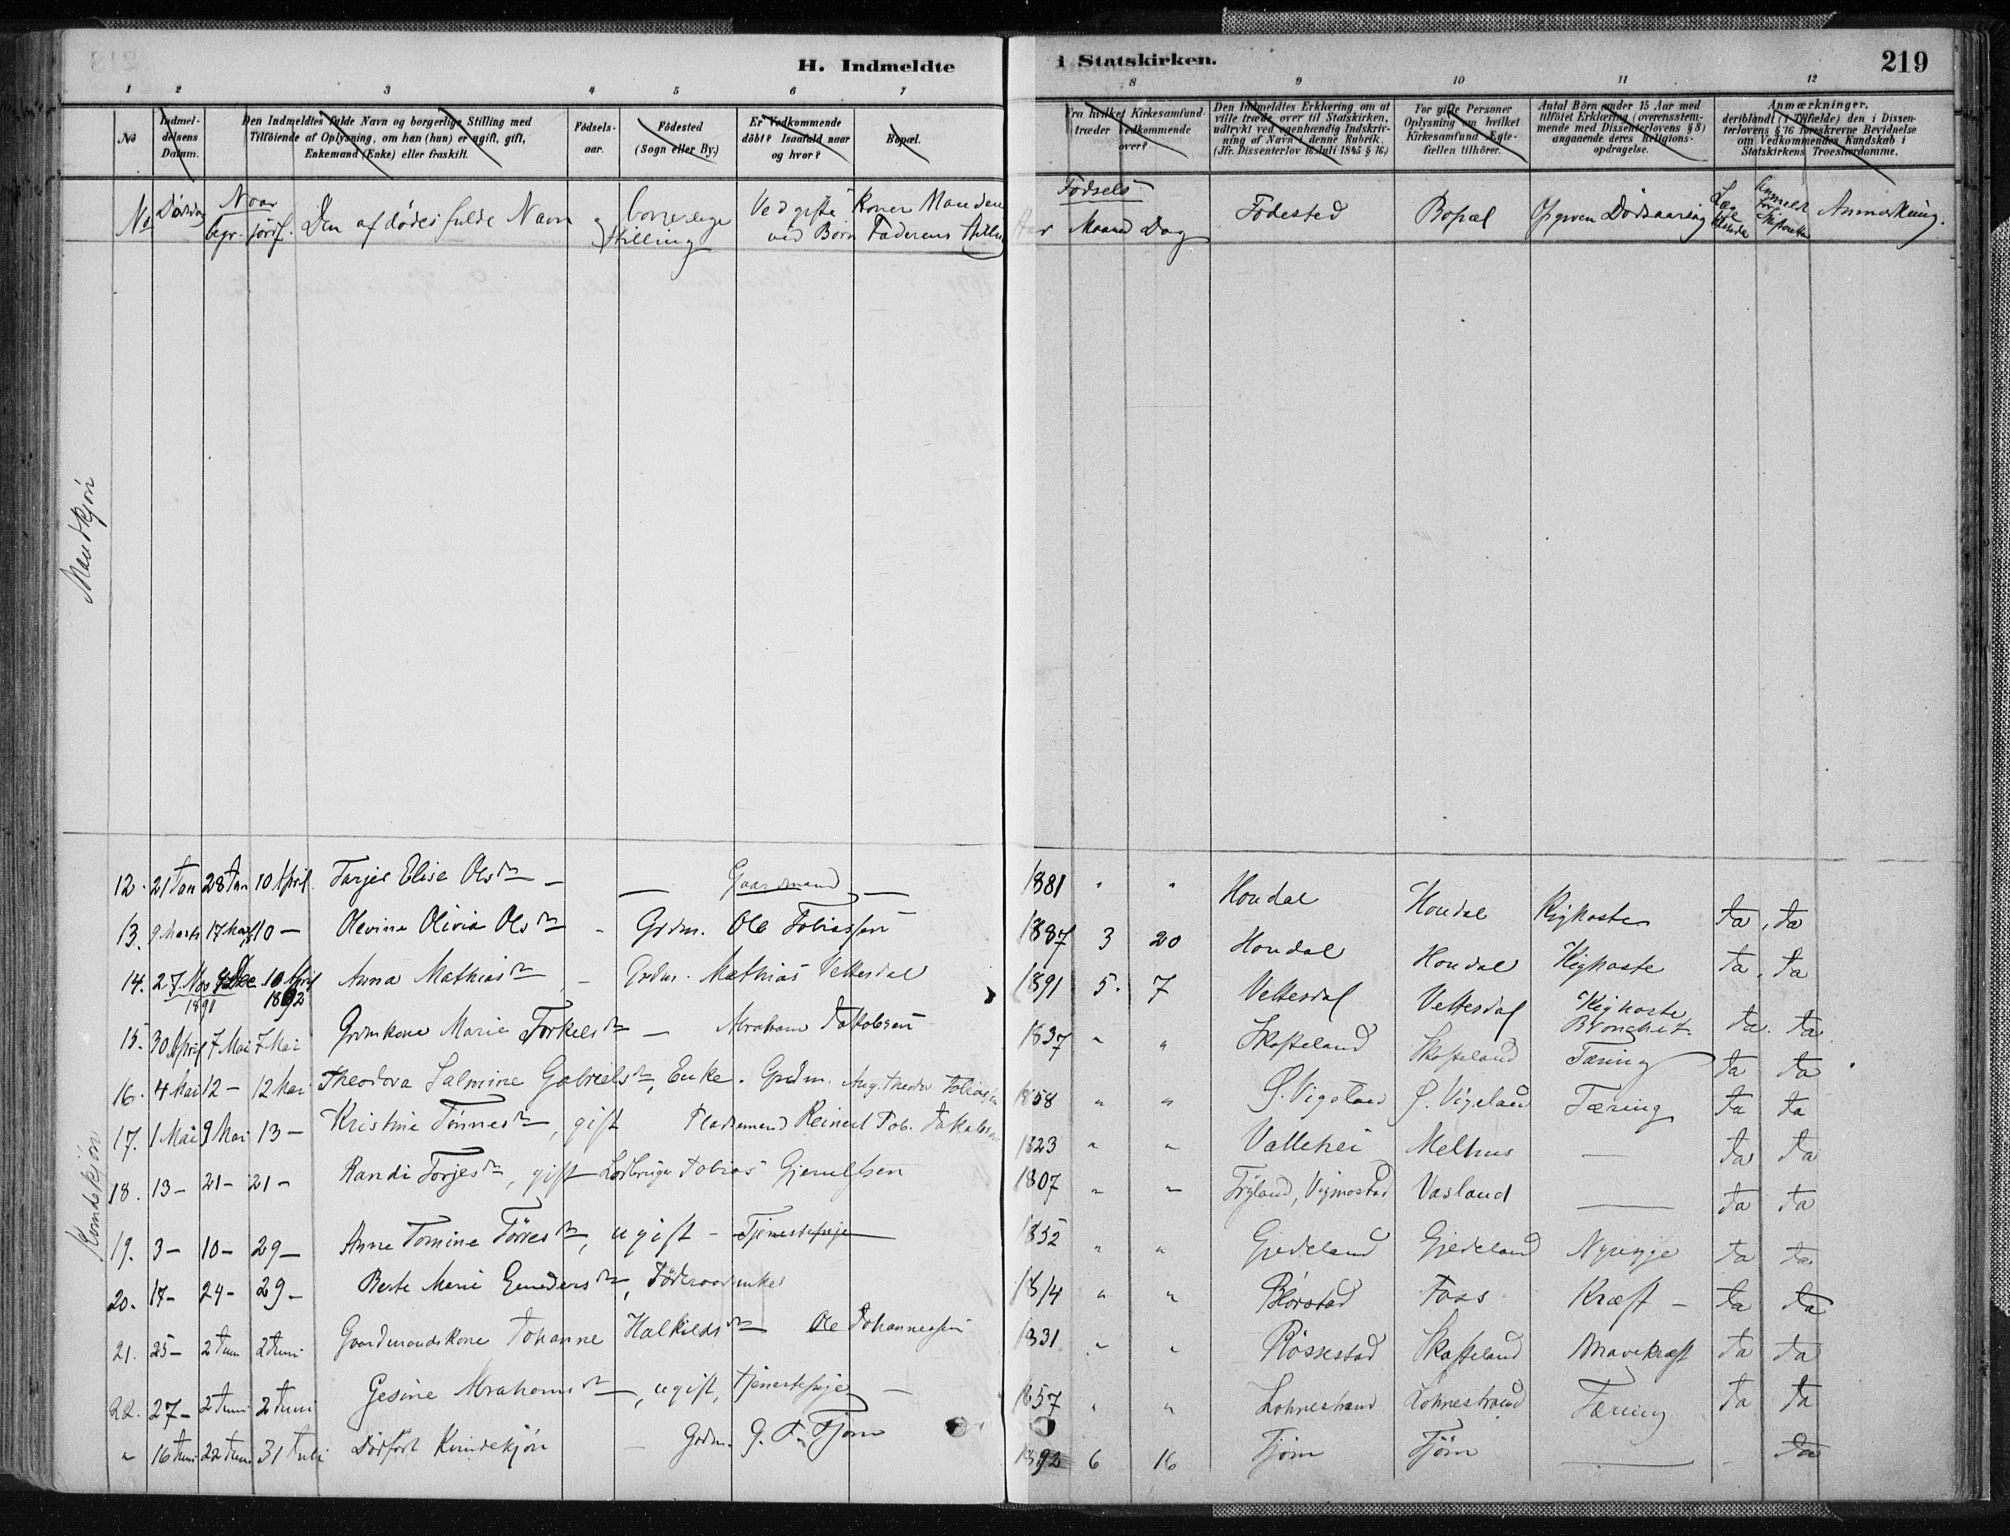 H. Indmeldte i Statskirken. 219
1 2 3 4 5 6 7 8 9 10 11 12
No
Indmeldelsens Datum.
Den Indmeldtes fulde Navn og borgerlige Stilling med
Tilföiende af Oplysning, om han (hun) er ugift, gift,
Enkemand (Enke) eller fraskilt.
Födselsaar.
Födested
(Sogn eller By.)
Er Vedkommende
döbt? Isaafald naar
og hvor?
Bopæl.
Fra hvilket Kirkesamfund
træder Vedkommende
over?
Den Indmeldtes Erklæring om at
ville træde over til Statskirken,
udtrykt ved egenhændig Indskrivning af Navn i denne Rubrik.
(Jfr. Dissenterlov 16 Juli 1845 § 16.)
For gifte Personer
Oplysning om hvilket
Kirkesamfund Ægtefællen tilhörer.
Antal Börn under 15 Aar med
tilföiet Erklæring (overensstemmende med Dissenterlovens § 8)
angaaende deres Religionsopdragelse.
Anmærkninger,
deriblandt (i Tilfælde) den i Dissenterlovens § 16 foreskrevne Bevidnelse
om Vedkommendes Kundskab i
Statskirkens Troeslærdomme.
No Dödsdag Naar begr. jordf. Den afdödes fulde Navn og borgerlige Stilling Ved gifte Koner Manden ved Börn Faderens Stilling
Födsels Aar Maaned Dag Födested Bopæl Opgiven Dödsaarsag Anmærkning.
Mandkjön
Kvindekjön
12. 21 Jan 28 Jan 10 April Tarjer Elise Olsdtr — — Gaardmand — 1881 " " Homdal Homdal Kighoste Ja Ja
13. 9 Marts 17 Marts 10 — Olevine Olivia Olsdtr - Grdm. Ole Tobiassen 1887 3 20 Homdal Homdal Kighoste Ja Ja
14. 27 Nov 1891 4 Dec 10 April 1892 Anna Mathiasdtr - Grdm. Mathias Vettesdal 1891 5. 7 Vettesdal Vettesdal Kighoste Bronchit Ja. Ja
15. 30 April 7 Mai 7 Mai Grdmkone Marie Torkelsdtr — Abraham Jakobsen 1837 " " Skofteland Skofteland Tæring Ja Ja
16. 4 Mai 12 — 12 Mai Theodora Salmine Gabrielsdtr, Enke. Grdm. Aug. Theodor Tobiassen 1858 " " Ö. Vigeland Ö. Vigeland Tæring Ja Ja
17. 1 Mai 9 Mai 13 — Kristine Tönnesdtr, gift Pladsmand Reinert Tob. Jakobsen 1823 " " Vallehei Melhus — Ja Ja
18. 13 — 21 — 21 — Randi Torjesdtr, gift Tobias 1807 " " Tryland, Vigmostad Vasland — Ja Ja
19. 3 — 10 — 29 — Anne Tomine Törresdtr, ugift - Tjenestepige 1852 " " Gjedeland Gjedeland Nyresyge Ja Ja
20. 17 — 24 — 29 — Berte Marie Gundersdtr, Föderaadsenke 1814 " " Foss Kræft — Ja Ja
21. 25 — 2 Juni 2 Juni Gaardmandskone Johanne Halkildsdtr — Ole Johannessen 1831 " " Rössestad Skofteland Mavekræft Ja Ja
22. 27 — 2 Juni 2 Juni Gesine Abrahamsdtr —, ugift, Tjenestepige — 1857 " " Lohnestrand Lohnestrand Tæring Ja Ja
" 16 Juni 22 Juni 31 Juli Dödfödt Kvindekjön — Grdm. G. T. Tjöm 1892 6 16 Tjöm Tjöm — - Ja